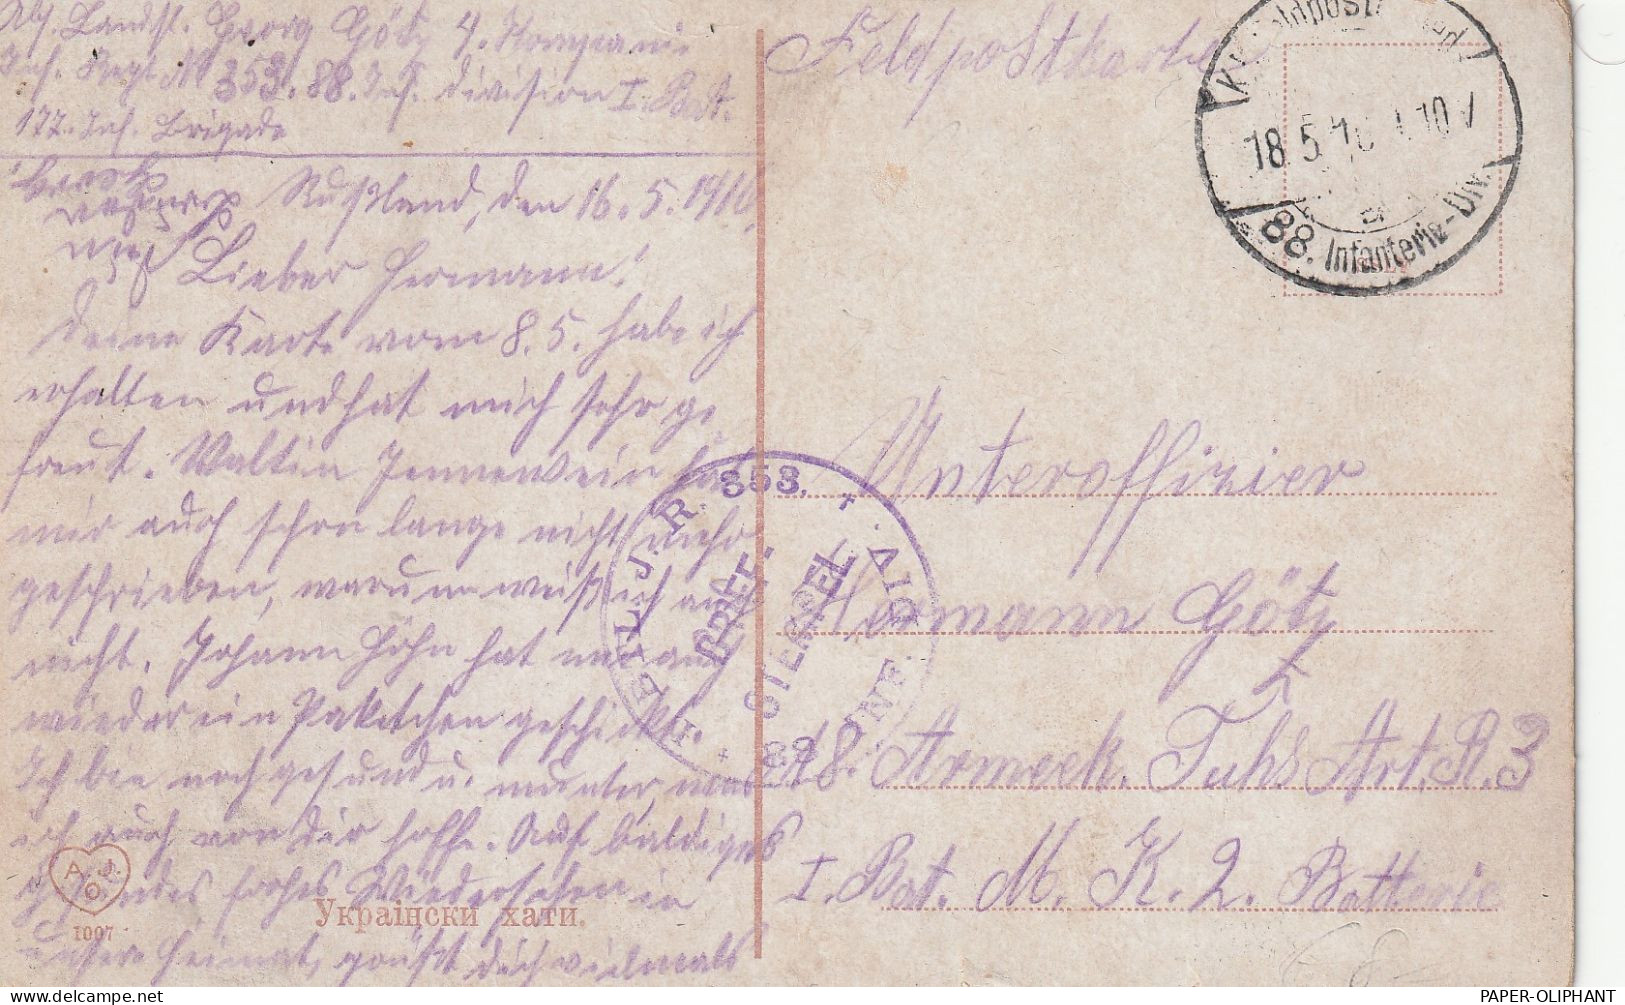 Abs. Landst. Georg Götz 4. Kompanie
Inf. Regt No 353. 88. Inf. Division I. Bat.
177. Inf. Brigade
Rußland, den 16. 5. 1916.
Lieber Hermann!
Deine Karte vom 8. 5. habe ich
erhalten und hat mich sehr ge
freut. Valtin Jennewein hat
mir auch schon lange nicht mehr
geschrieben, warum weiß ich auch
nicht. Johann Höhn hat mir auch
wieder ein Paketchen geschickt.
Ich bin noch gesund u. munter, was
ich auch von Dir hoffe. Auf baldiges
gesundes frohes Wiedersehen in
unsere Heimat, grüßt dich vielmals
A. O. J.
1007
Украінски хати.
Feldpostkarte
88. Infanterie-Div.
18 5 16
J. R. 353.
BRIEF-
STEMPEL
Unteroffizier
Hermann Götz
18. Armeek. Fuhs Art. R. 3
I. Bat. M. K. 2. Batterie
PAPER-OLIPHANT